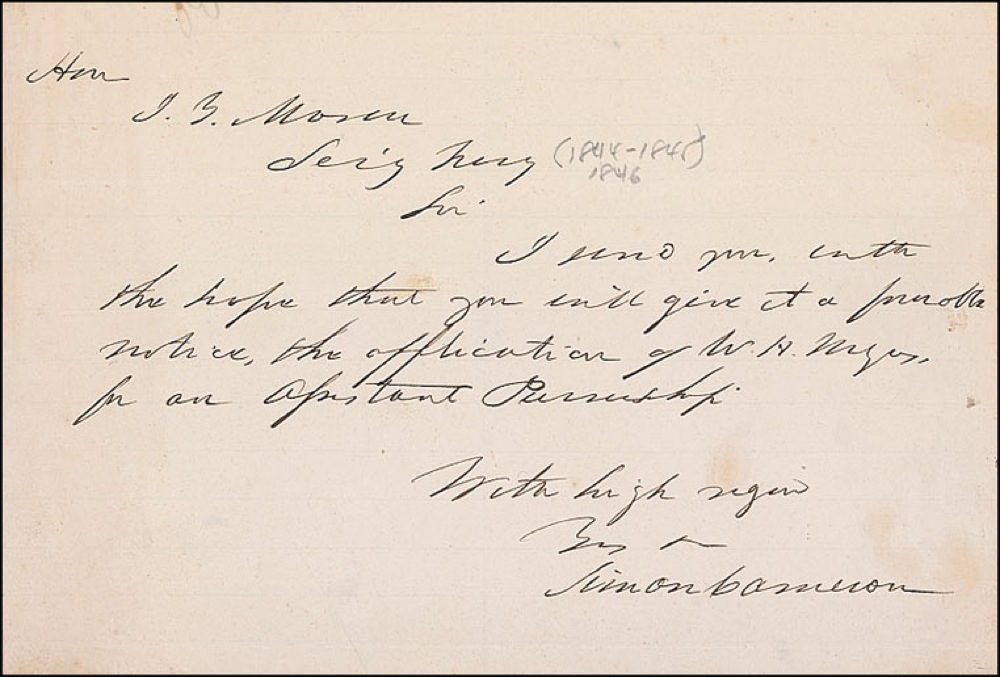 Hon
J. Y. Mason
Secy Navy (1844-1845)
1846
Sir
I send you, with
the hope that you will give it a favorable
notice, the application of W. H. Myers,
for an Assistant Pursership
With high regard
Yrs
Simon Cameron